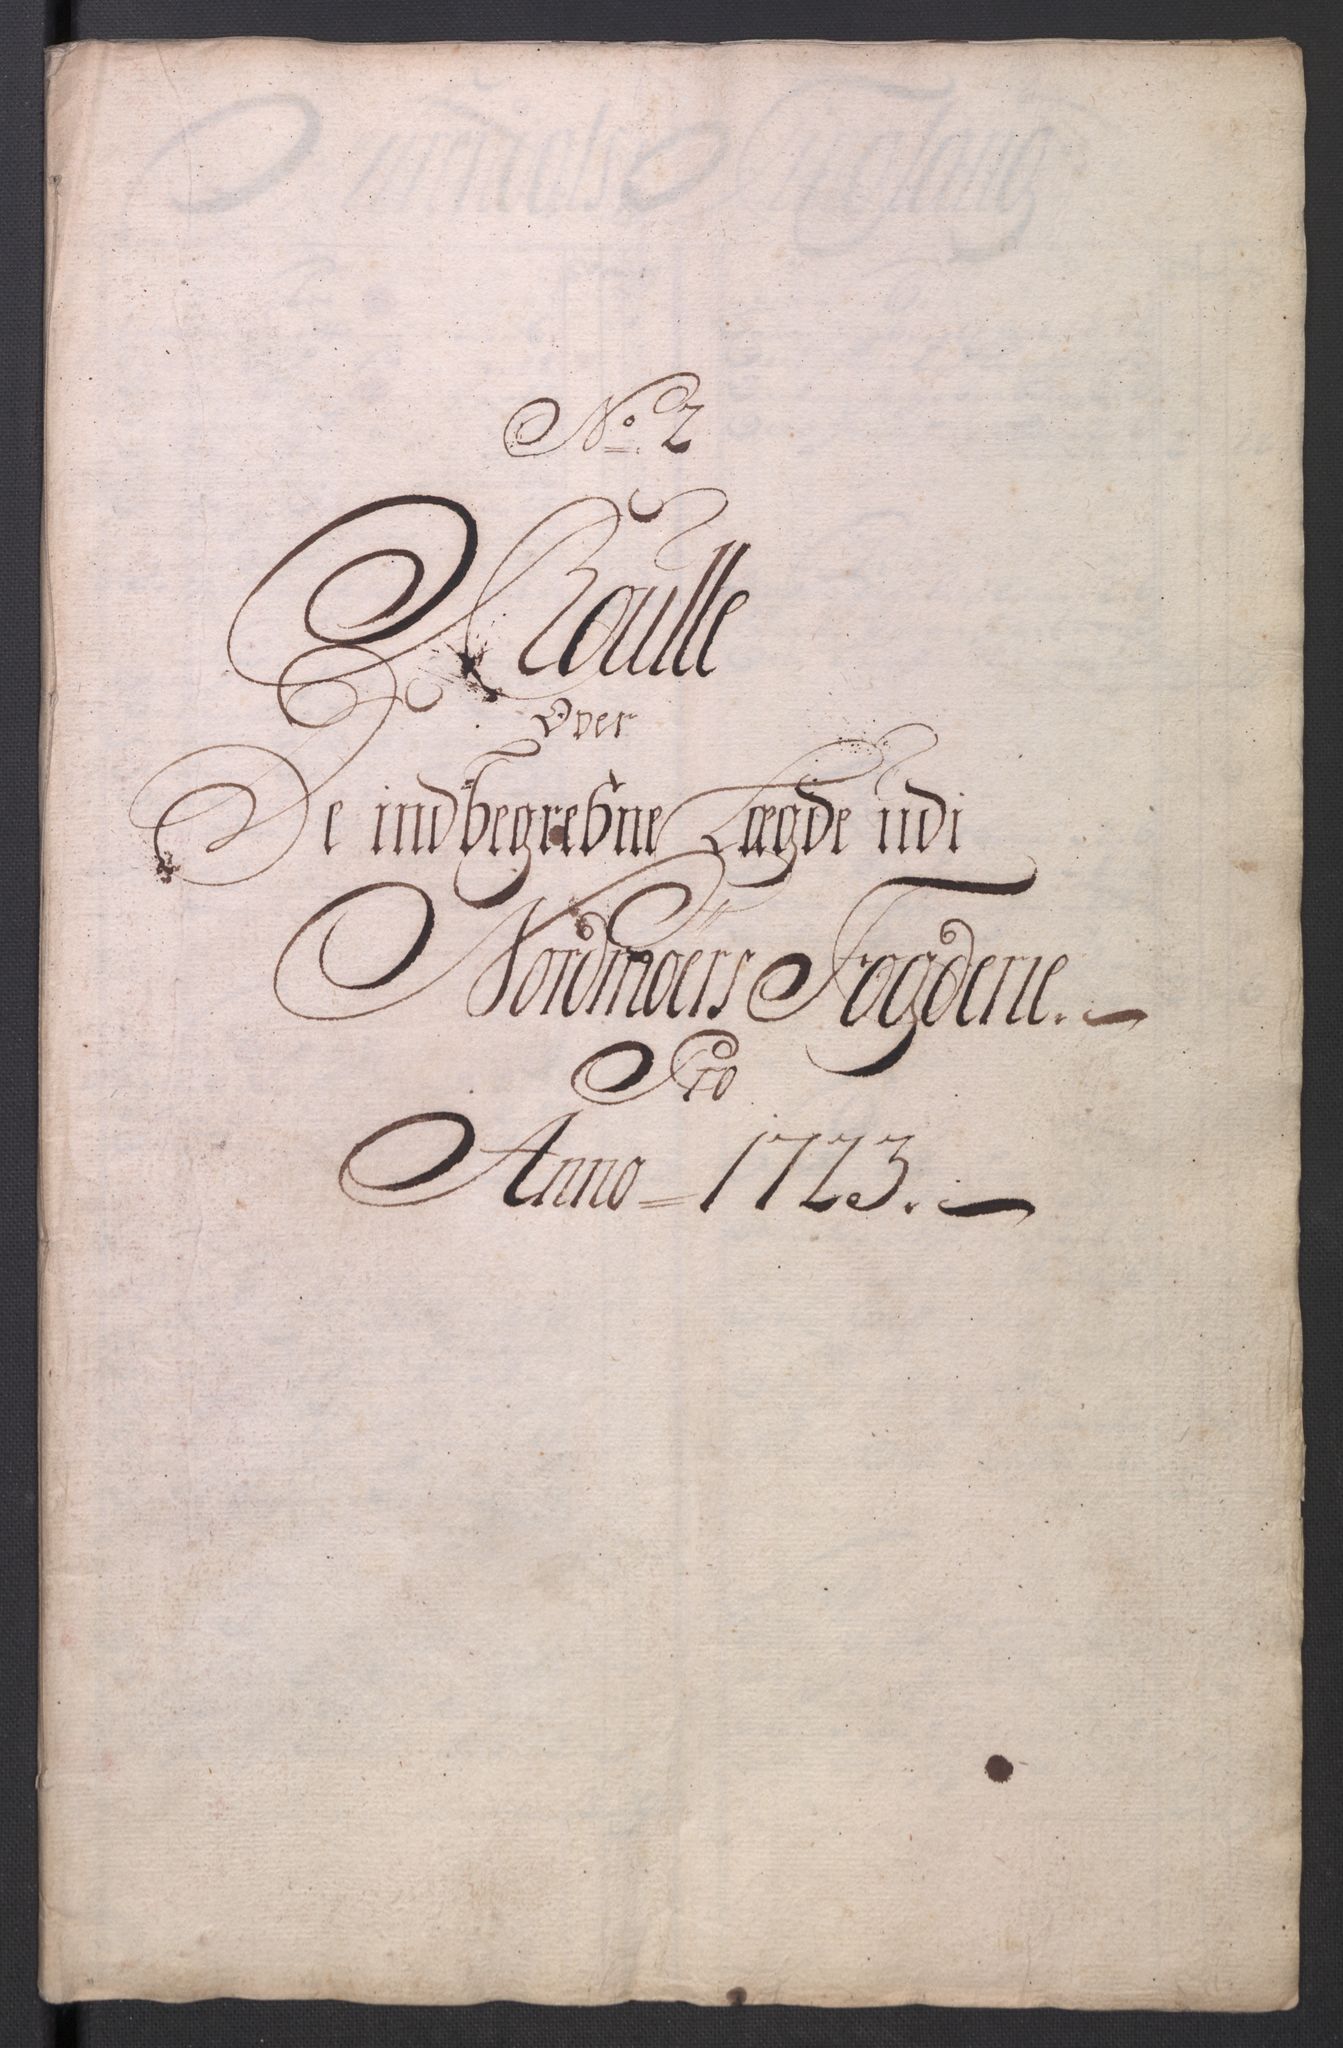 No. 2
Roulle
Over
De indbegrebne Lægde udi
Nordmøers Fogderie.
Pro
Anno = 1723.